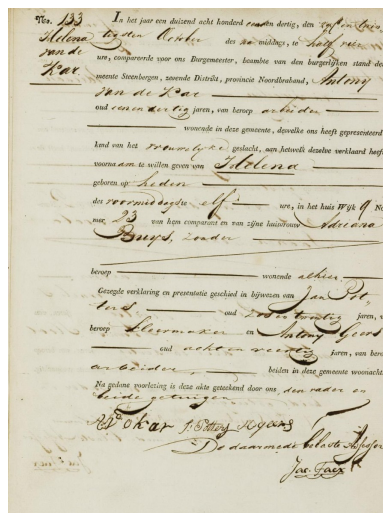 Nro. 133 In het jaar een duizend acht honderd dertig, den
Helena October des na middags, te half vier
van de ure, compareerde voor ons Burgemeester, beambte van den burgerlijken stand de
Kar meente Steenbergen, zevende Distrikt, provincie Noordbraband, Antony
van de Kar
oud jaren, van beroep arbeider
wonende in deze gemeente, dewelke ons heeft gepresenteerd
kind van het vrouwelyke geslacht, aan hetwelk dezelve verklaard heeft
voornaam te willen geven van Helena
geboren op heden
des voormiddags te elf ure, in het huis Wijk 9 No
mer, 23 van hem comparant en van zijne huisvrouw Adriana
Buys, zonder
beroep wonende alhier.
Gezegde verklaring en presentatie geschied in bijwezen van Jac Pot-
ters oud jaren, v
beroep kleermaker en Antony Geers
oud acht en veertig jaren, van bero
arbeider, beiden in deze gemeente woonacht
Na gedane voorlezing is deze akte geteekend door ons, den vader en
beide getuigen
J. Potters
De daarmede belaste Assessor
Jac.